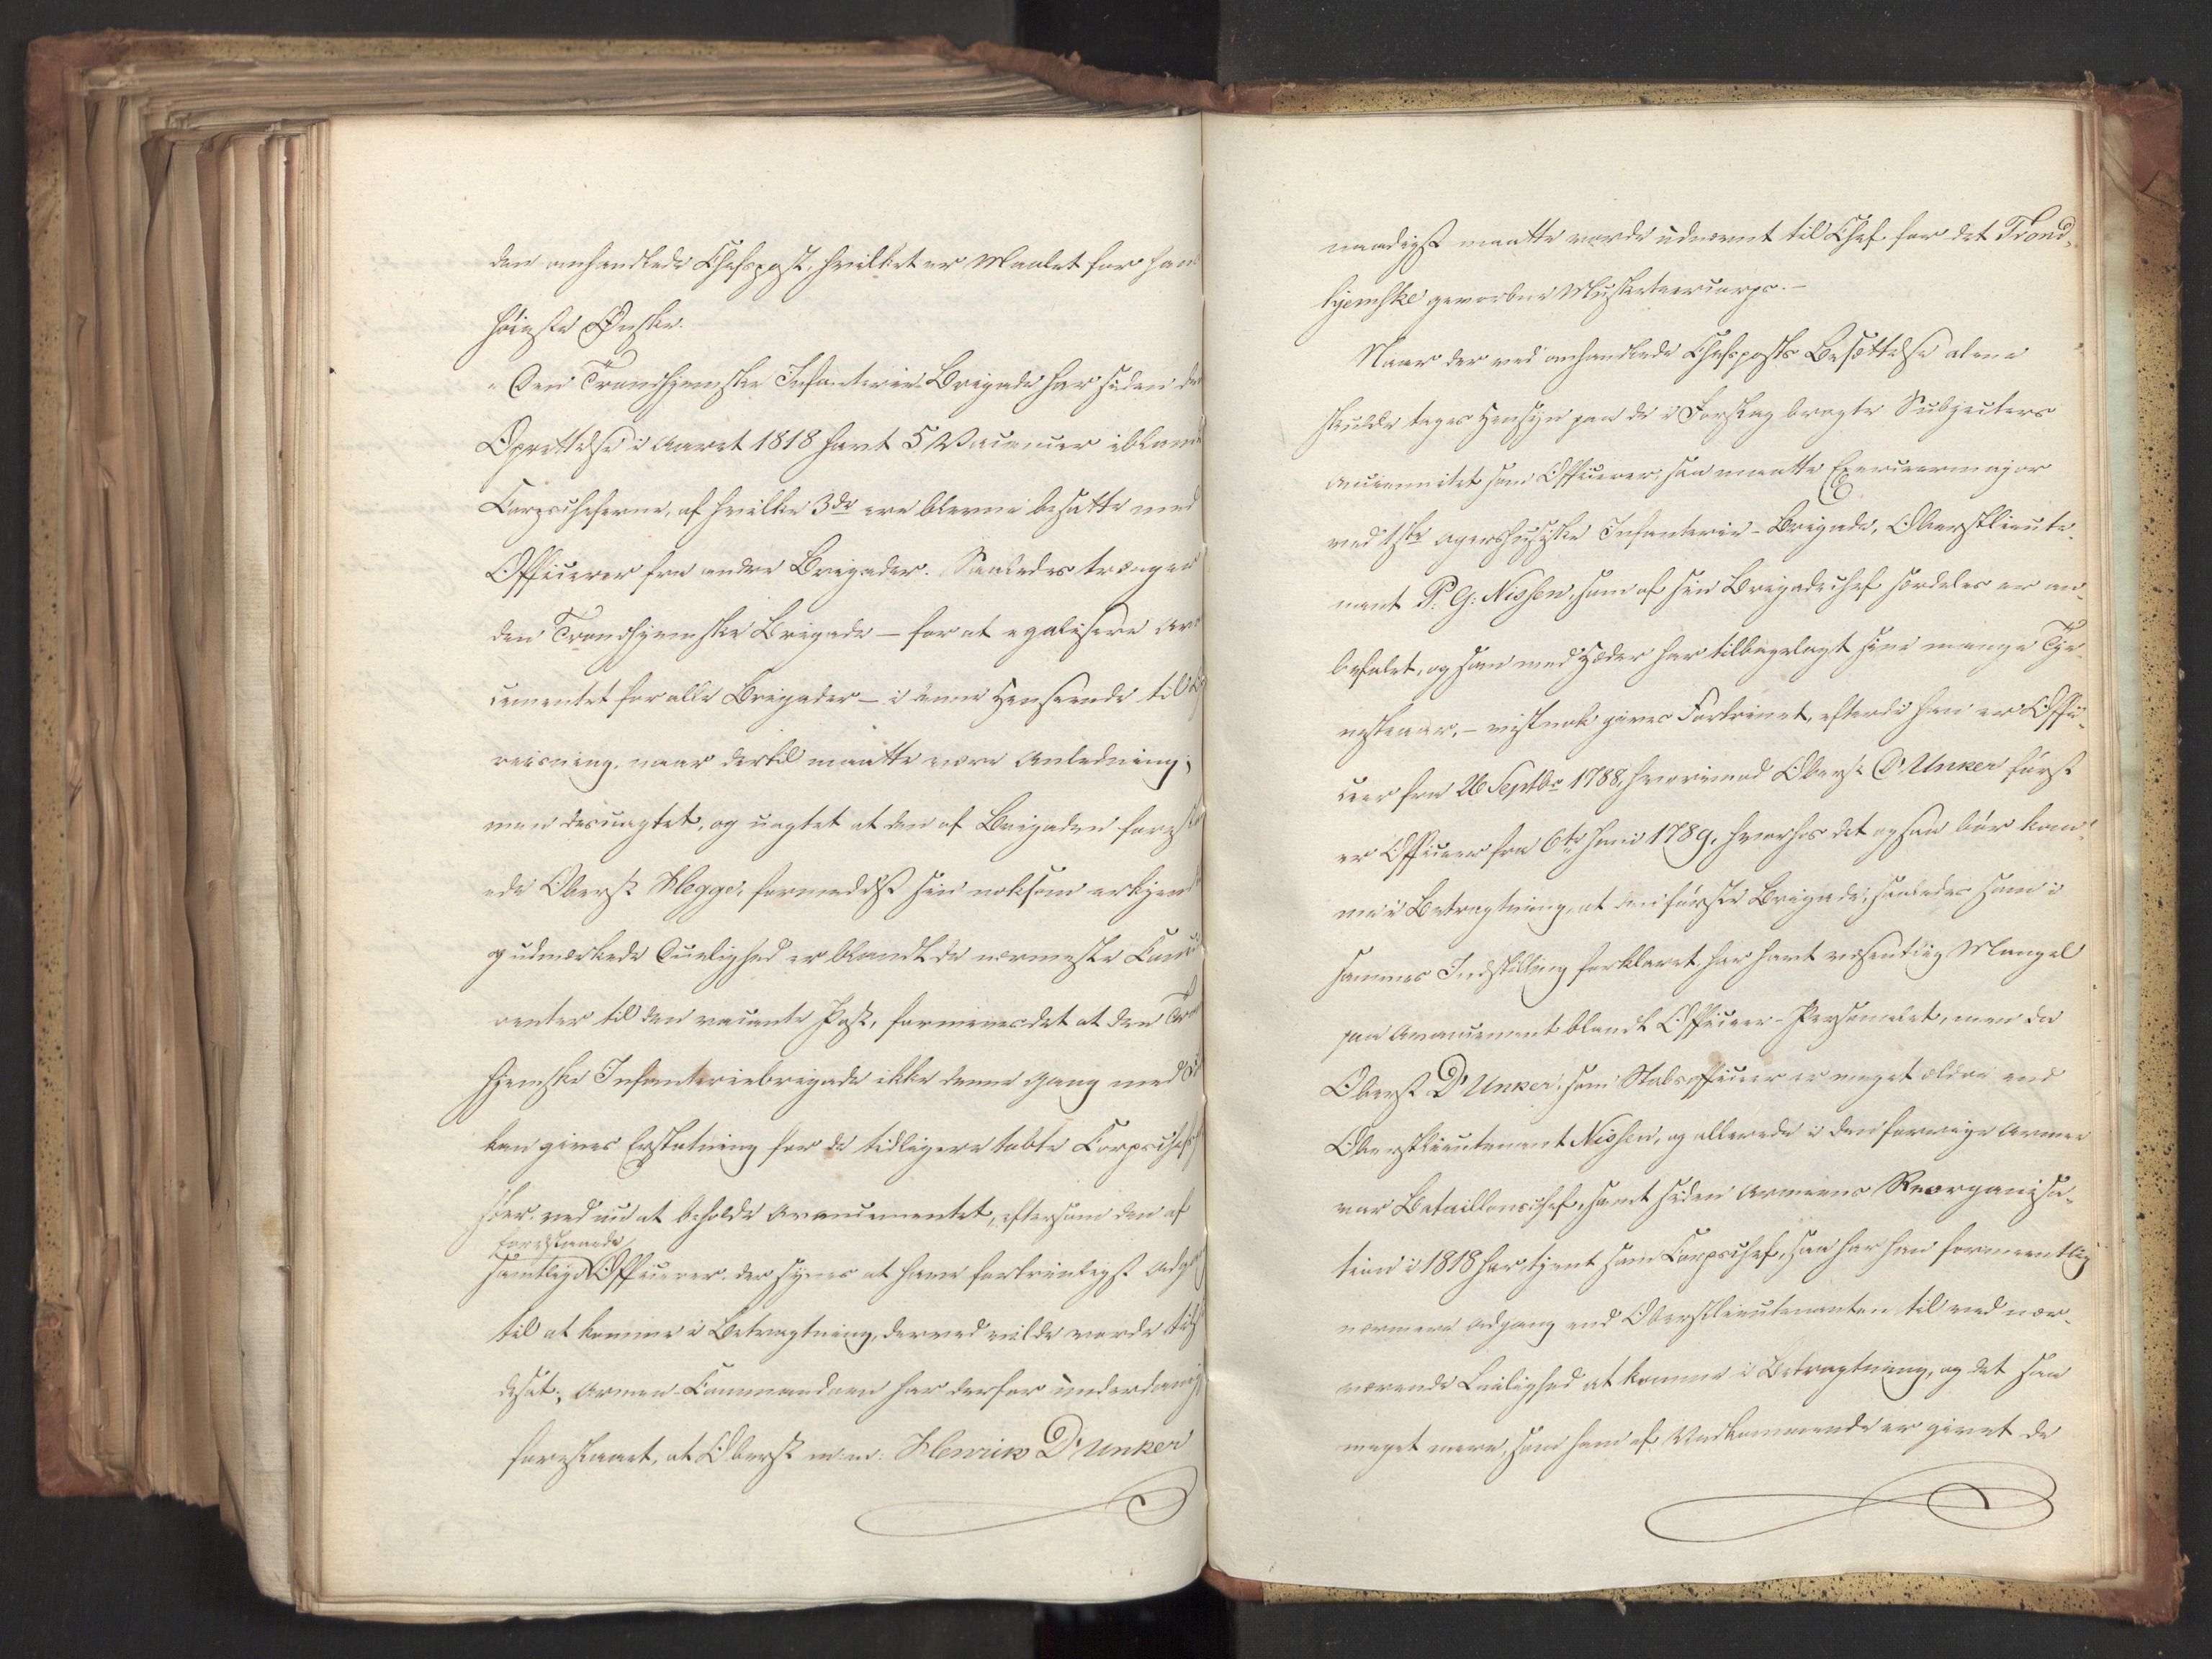 den omhandlede Chefspost, hvilket er Maalet for hans
höieste Ønske.
Den Trondhjemske Infanterie Brigade har siden de
Oprettelse i Aaret 1818 havt 5 Vacancer iblandt
Corpscheferne, af hvilke 3de ere blevne besatte med
Officierer fra andre Brigader. Saaledes trænger
den Trondhjemske Brigade - for at egalisere Ava
cementet for alle Brigader - i denne Henseende til Op
reisning, naar dertil maatte være Anledning;
men desuagtet, og uagtet at den af Brigaden foresla
ede Oberst Hegge, formedelst sin noksom erkjend
og udmærkede Duelighed er blandt de nærmeste Concur
renter til den vacante Post, formenes det at den Tron
hjemske Infanteriebrigade ikke denne Gang med
kan gives Erstatning for de tidligere tabte Corpschefs
ved nu at beholde Avancementet, eftersom den af
foreslaaede
samtlige Officierer, der synes at have fortrinligst Adgang
til at komme i Betragtning, derved vilde vorde tilside
desat; Armee-Commandoen har derfor underdanigst
foreslaaet, at Oberst m. m. Henrik D'Unker
naadigst maatte vorde udnævnt til Chef for det Trond-
hjemske gevorbne Musketeercorps.-
Naar der ved omhandlede Chefsposts Besættelse alene
skulde tages Hensyn paa de i Forslag bragte Subjecters
Anciennitet som Officierer, saa maatte Exerceermajor
ved 1ste Agershuusiske Infanterie-Brigade, Oberstlieute-
nant P. G. Nissen, som af sin Brigadechef særdeles er an-
befalet, og som med Hæder har tilbagelagt sine mange Tje-
nesteaar, - vistnok gives Fortrinet, efterdi han er Offi-
ceer fra 26 Septbr 1788, hvorimod Oberst D'Unker först
er Officeer fra 6te Juni 1789, hvorhos det ogsaa bör kom-
me i Betragtning, at den förste Brigade, saaledes som i
sammes Indstilling forklaret, har havt væsentlig Mangel
paa Avancement blandt Officeer-Personalet, men da
Oberst D'Unker, som Stabsofficeer er meget ældre end
Oberstlieutenant Nissen, og allerede i den forrige Armee
var Bataillonschef, samt siden Armeens Reorganisa-
tion i 1818 har tjent som Corpschef, saa har han formeentlig
nærmere Adgang end Oberstlieutenanten til ved nær-
værende Leilighed at komme i Betragtning, og det saa
meget mere, som ham af Vedkommende er givet de